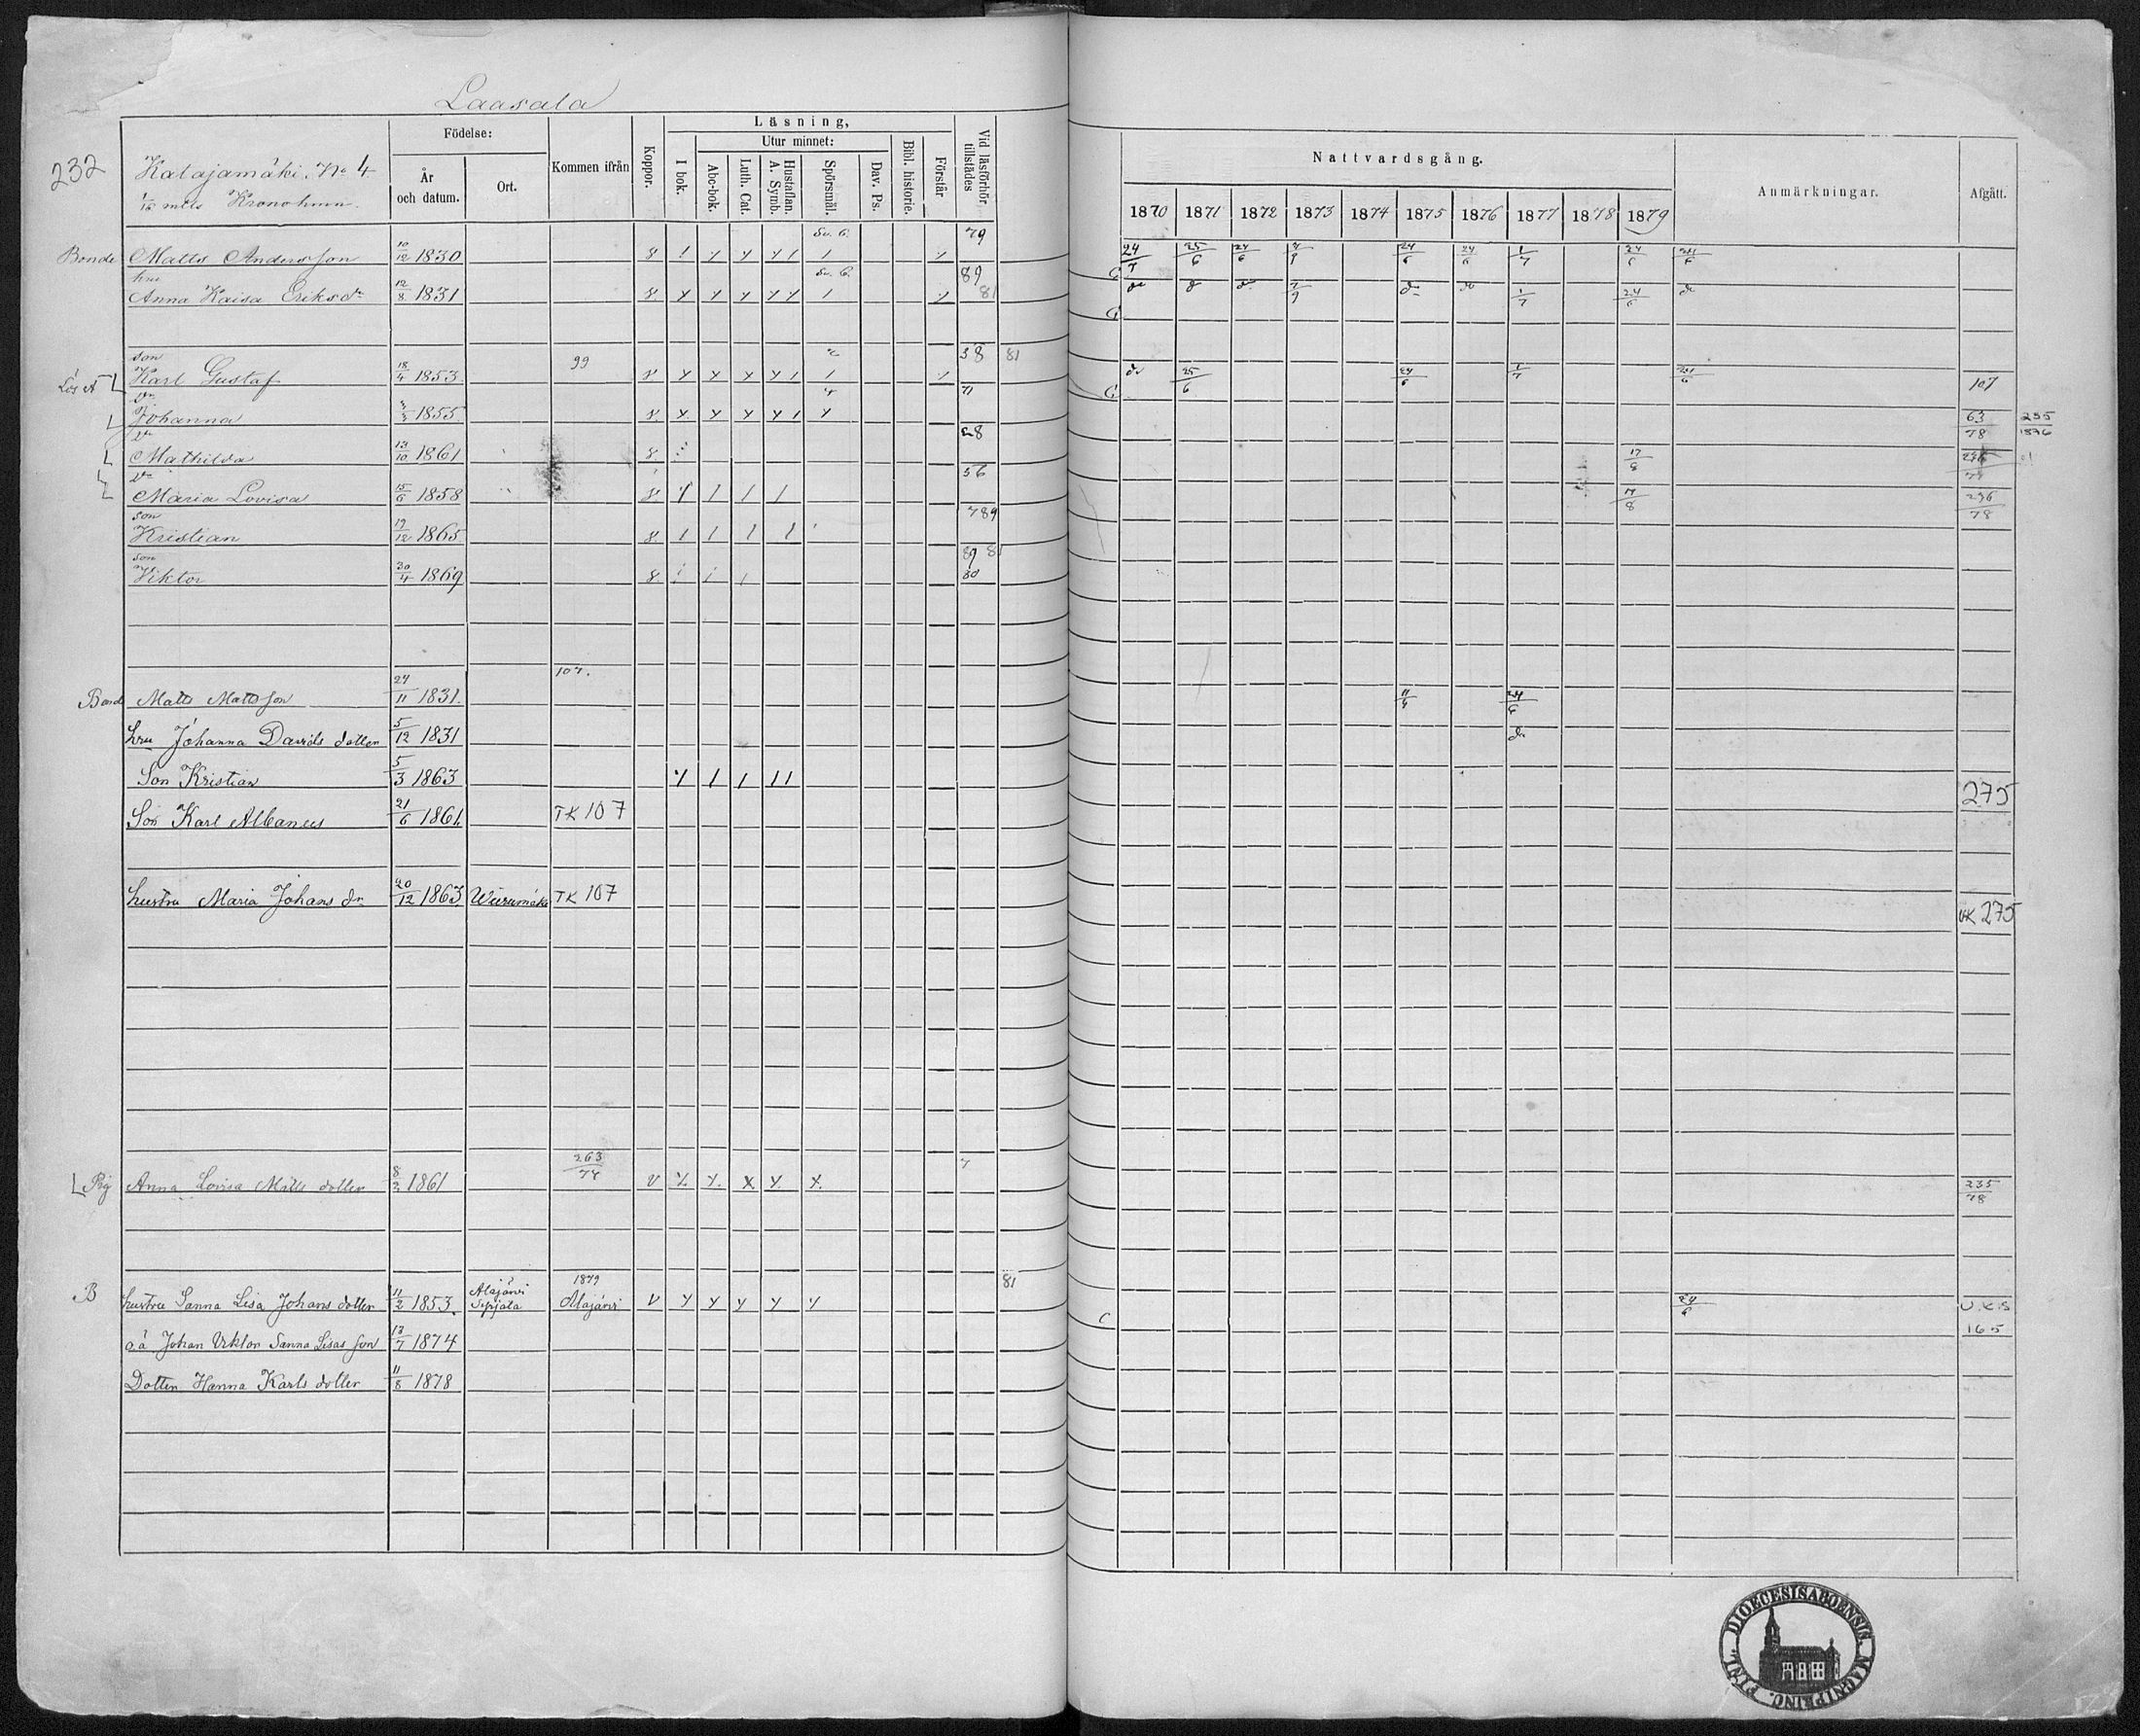 Laasala
232
Katajamäki. No 4
1/12 mtl Kronohmn.
Födelse:
År och datum.
Ort.
Kommen ifrån
Koppor.
Läsning,
I bok.
Utur minnet:
Abc-bok.
Luth. Cat.
Hustaflan. A. Symb.
Spörsmål.
Dav. Ps.
Bibl. historie.
Förstår
Vid läsförhör tillstädes
Nattvardsgång.
1870 1871 1872 1873 1874 1875 1876 1877 1878 1879
Anmärkningar.
Afgått.
Bonde Matts Andersson 10/12 1830 79 24/7 25/6 24/6 24/6 24/6 1/7 24/6
hru
Anna Kaisa Eriksdr 12/8 1831 89 81 do do do 7/9 do do 1/7 24/6 do
son
Karl Gustaf 18/4 1853 99 81 do 25/6 24/6 1/7 107
dr
Johanna 1855 71 63/78 235/1876
dr
Mathilda 13/10 1861 17/8
dr
Maria Lovisa 15/6 1858 56 17/8 236/78
son
Kristian 19/12 1865 789
son
Viktor 30/4 1869 80
Bonde Matts Mattsson 24/11 1831 107. 11/4 24/6
hru Johanna Davids dotter 5/12 1831 do
Son Kristian 5/3 1863
275
Son Karl Albanus 21/6 1861 TK 107
hustru Maria Johans dr 20/12 1863 TK 107
UK 275
Pig Anna Lovisa Matts dotter 1861 263/77 7 235/78
B hustru Sanna Lisa Johans dotter 11/2 1853. Alajärvi 1879 Alajärvi 81 24/6 U.K.S
165
o.ä Johan Viktor Sanna Lisas son 13/7 1874
Dotter Hanna Karls dotter 11/8 1878
DIOECESIS ABOENSIS. MAGNI PRINC. FINL.